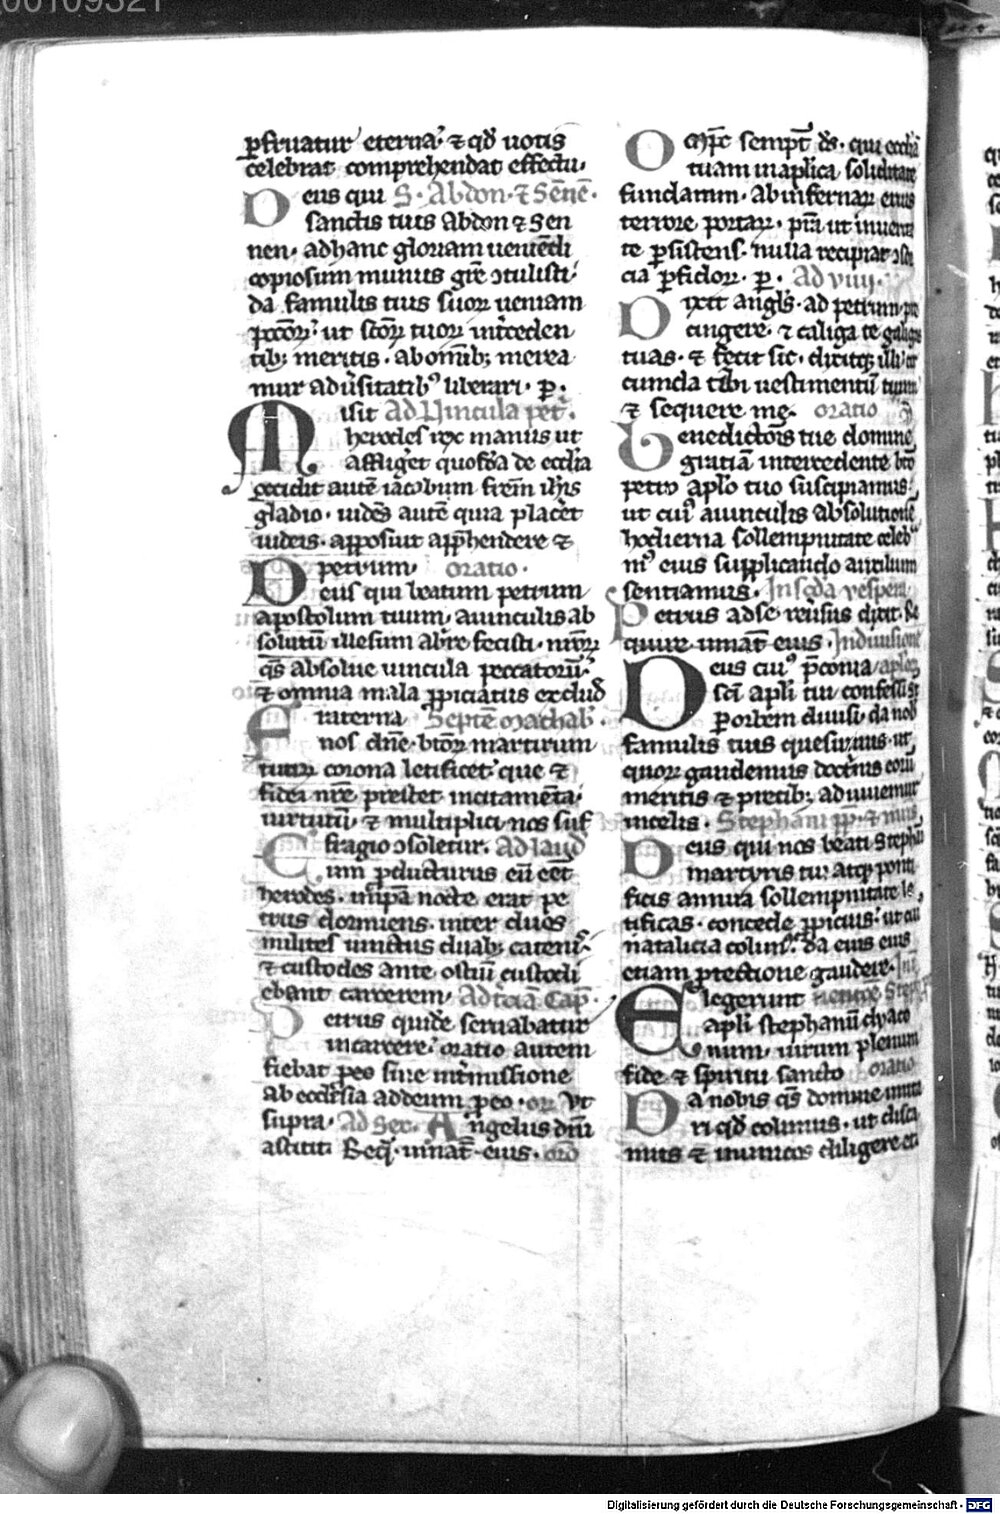 ꝑfruatur eterna. ⁊ qd̄ uotis
celebrat comprehendat effectu.
Deus qui S. Abdon. ⁊ Sēnē.
sanctis tuis Abdon ⁊ Sen
nen. ad hanc gloriam ueniēdi
copiosum munus gr̄e ꝯtulisti.
da famulis tuis suoꝝ ueniam
pccōꝝ. ut sc̄oꝝ tuoꝝ int̄ceden
tibꝫ meritis. ab om̄ibꝫ merea
mur adūsitatibꝰ liberari. p̄.
Misit Ad Uincula pet.
herodes rex manus ut
affliget quosdā de eccl̄ia
occidit autē iacobum fr̄em ioh̄is
gladio. uidēs autē quia placet
iudeis. apposuit app̄hendere ⁊
petrum. oratio.
Deus qui beatum petrum
apostolum tuum. a uinculis ab
solutū illesum abire fecisti. nr̄oꝝ
q̄s absolue uincula peccatoꝝ.
⁊ omnia mala ꝓpiciatus exclud
Fraterna Septē machab.
nos dn̄e. btōꝝ martirum
tuoꝝ corona letificet. que ⁊
fidei nr̄e prestet incitamēta.
uirtutū. ⁊ multiplici nos suf
fragio ꝯsoletur. Ad laud
Cum ꝓducturus eū eēt
herodes. in ip̄a nocte erat pe
trus dormiens. inter duos
milites uinctus duabꝫ cateni.
⁊ custodes ante ostiū custodi
ebant carcerem. Ad t̄ciā Cap̄.
Petrus quidē seruabatur
in carcere. oratio autem
fiebat p̄ eo sine int̄missione
ab ecclesia ad deum p̄ eo. or Vt
supra. Ad Sex. Angelus dn̄i
astitit Req̄. in nat̄ eius. orō
Omp̄c semp̄t ds̄. qui eccl̄iā
tuam in ap̄lica soliditate
fundatam. ab infernaꝝ eruis
terrore portaꝝ. p̄sta ut in ueritа
te ꝑsistens. nulla recipiat ꝯsor
cia ꝑfidoꝝ. p̄. Ad viiij.
Dixit angl̄s. ad petrum pre
cingere. ⁊ caliga te galigas
tuas. ⁊ fecit sic. dixitqꝫ illi cir
cumda tibi uestimentū tuum
⁊ sequere me. oratio
Benedictōis tue domine
gratiā intercedente btō
petro aplō tuo suscipiamus.
ut cuiꝰ a uinculis absolutionē
hodierna sollempnitate celeb
mꝰ eius supplicando auxilium
sentiamus. In scd̄a vespera
Petrus ad se reūsus dixit. Re
quire in nat̄ eius. In diuisione
Deus cuiꝰ p̄conia aploꝝ
sc̄i apl̄i tui confessi sūt
ꝑ orbem diuisi. da nob̄
famulis tuis quesumus. ut
quoꝝ gaudemus doct̄nis eoꝝ
meritis ⁊ precibꝫ adiuuemur
in celis. Stephani pp̄. ⁊ mris
Deus qui nos beati stephani
martyris tui atqꝫ ponti
ficis annua sollempnitate le
tificas. concede ꝓpicius. ut cuiꝰ
natalicia colimꝰ. de eius
etiam ꝓtectione gaudere. Int̄
Elegerunt nētiōe Steph
apl̄i stephanū dyaco
num. uirum plenum
fide ⁊ spiritu sancto oratio
Da nobis q̄s domine imita
ri qd̄ colimus. ut disca
mus ⁊ inimicos diligere
Digitalisierung gefördert durch die Deutsche Forschungsgemeinschaft - DFG